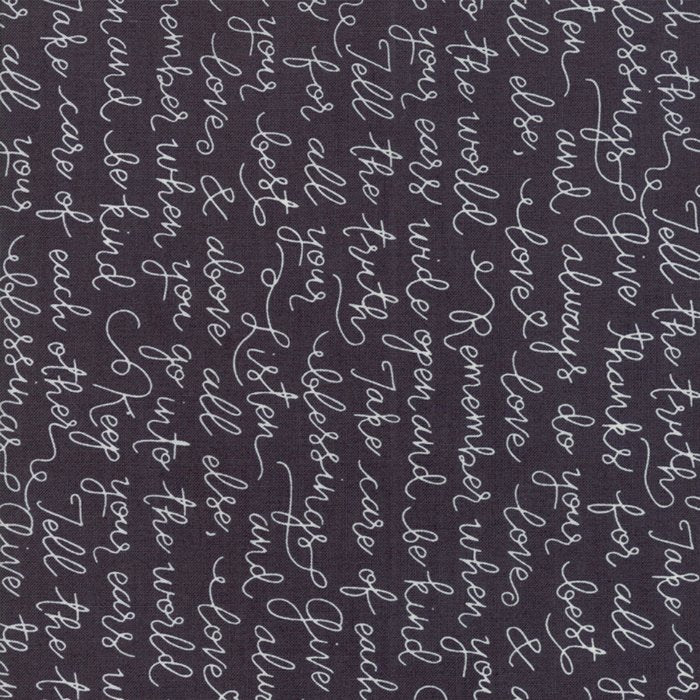 th other Tell the truth Take car
blessings Give thanks for all
ten and always do your best
all else, love love & love
to the world Remember when you
your ears wide open and be kind
Tell the truth Take care of each
for all your blessings Give
your best Listen and alwa
love & above all else, love
member when you go into the world
n and be kind Keep your ears w
Take care of each other Tell the t
all your blessings Give th